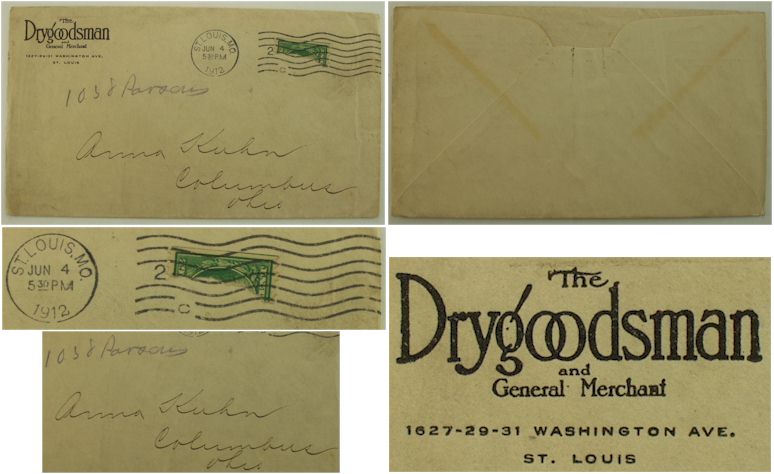 The
Drygoodsman
and
General Merchant
1627-29-31 WASHINGTON AVE.
ST. LOUIS
ST. LOUIS, MO.
JUN 4
5 30 PM
1912
2
C
1038
Anna Kuhn
Columbus
Ohio
ST. LOUIS, MO.
JUN 4
5 30 PM
1912
2
C
1038
Anna Kuhn
Columbus
Ohio
The
Drygoodsman
and
General Merchant
1627-29-31 WASHINGTON AVE.
ST. LOUIS